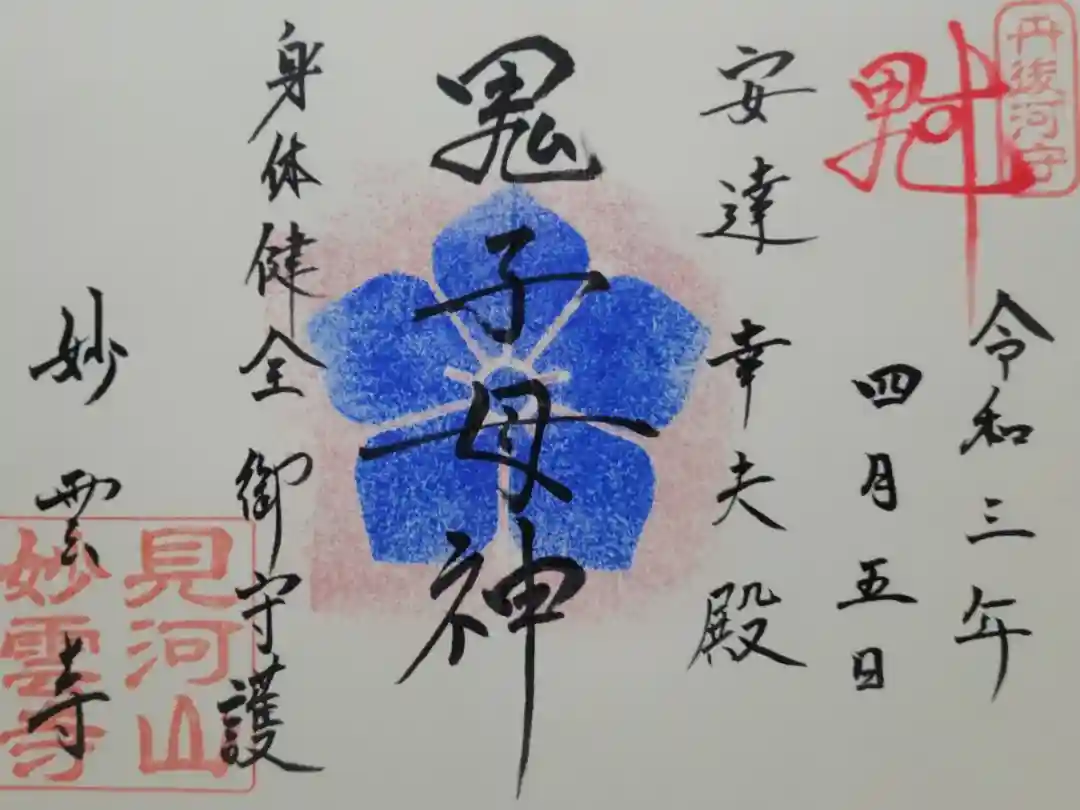 丹後河守
魁
令和三年
四月五日
安達 幸夫 殿
鬼子母神
身体健全 御守護
妙雲寺
見河山
妙雲寺